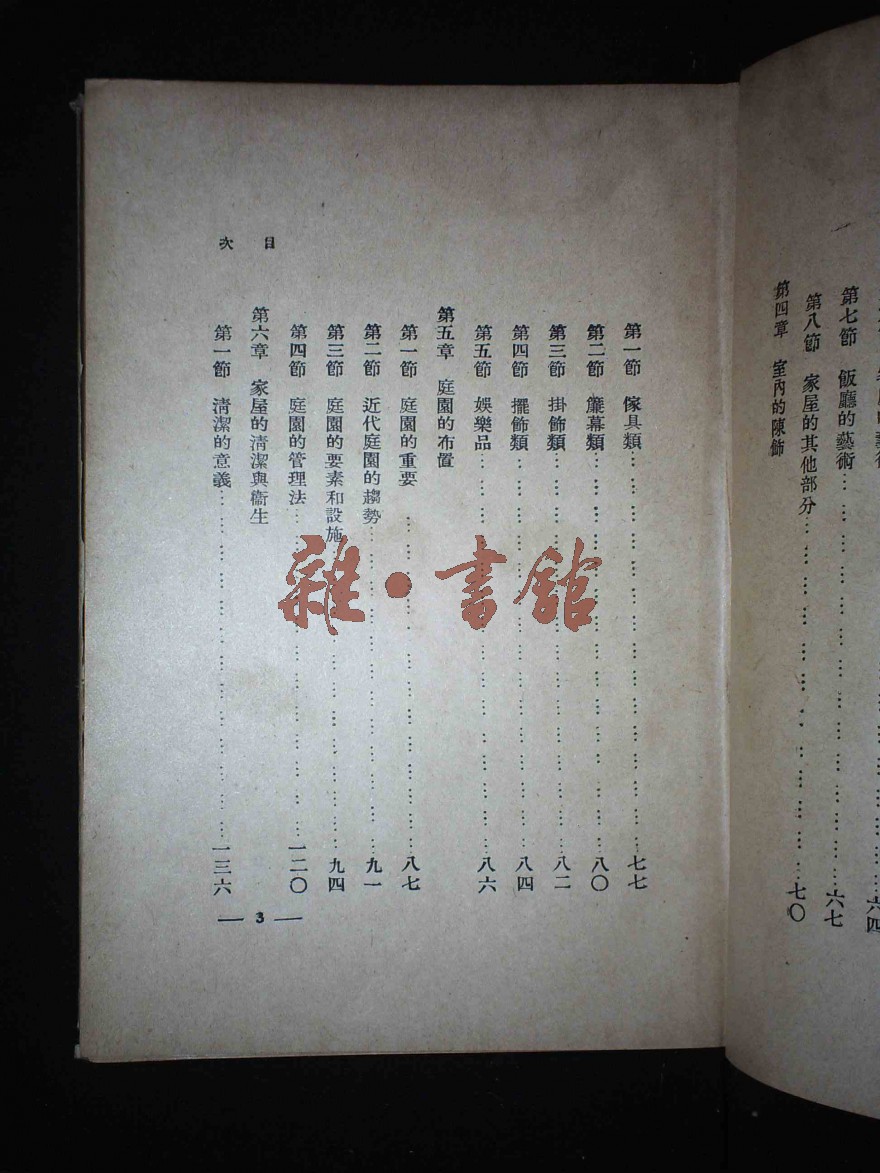 第七節 飯廳的藝術…………六七
第八節 家屋的其他部分…………七〇
第四章 室內的陳飾
目次
第一節 傢具類…………七七
第二節 簾幕類…………八〇
第三節 掛飾類…………八二
第四節 擺飾類…………八四
第五節 娛樂品…………八六
第五章 庭園的布置
第一節 庭園的重要…………八七
第二節 近代庭園的趨勢…………九一
第三節 庭園的要素和設施…………九四
第四節 庭園的管理法…………一二〇
第六章 家屋的清潔與衞生
第一節 清潔的意義…………一三六
— 3 —
雜·書館